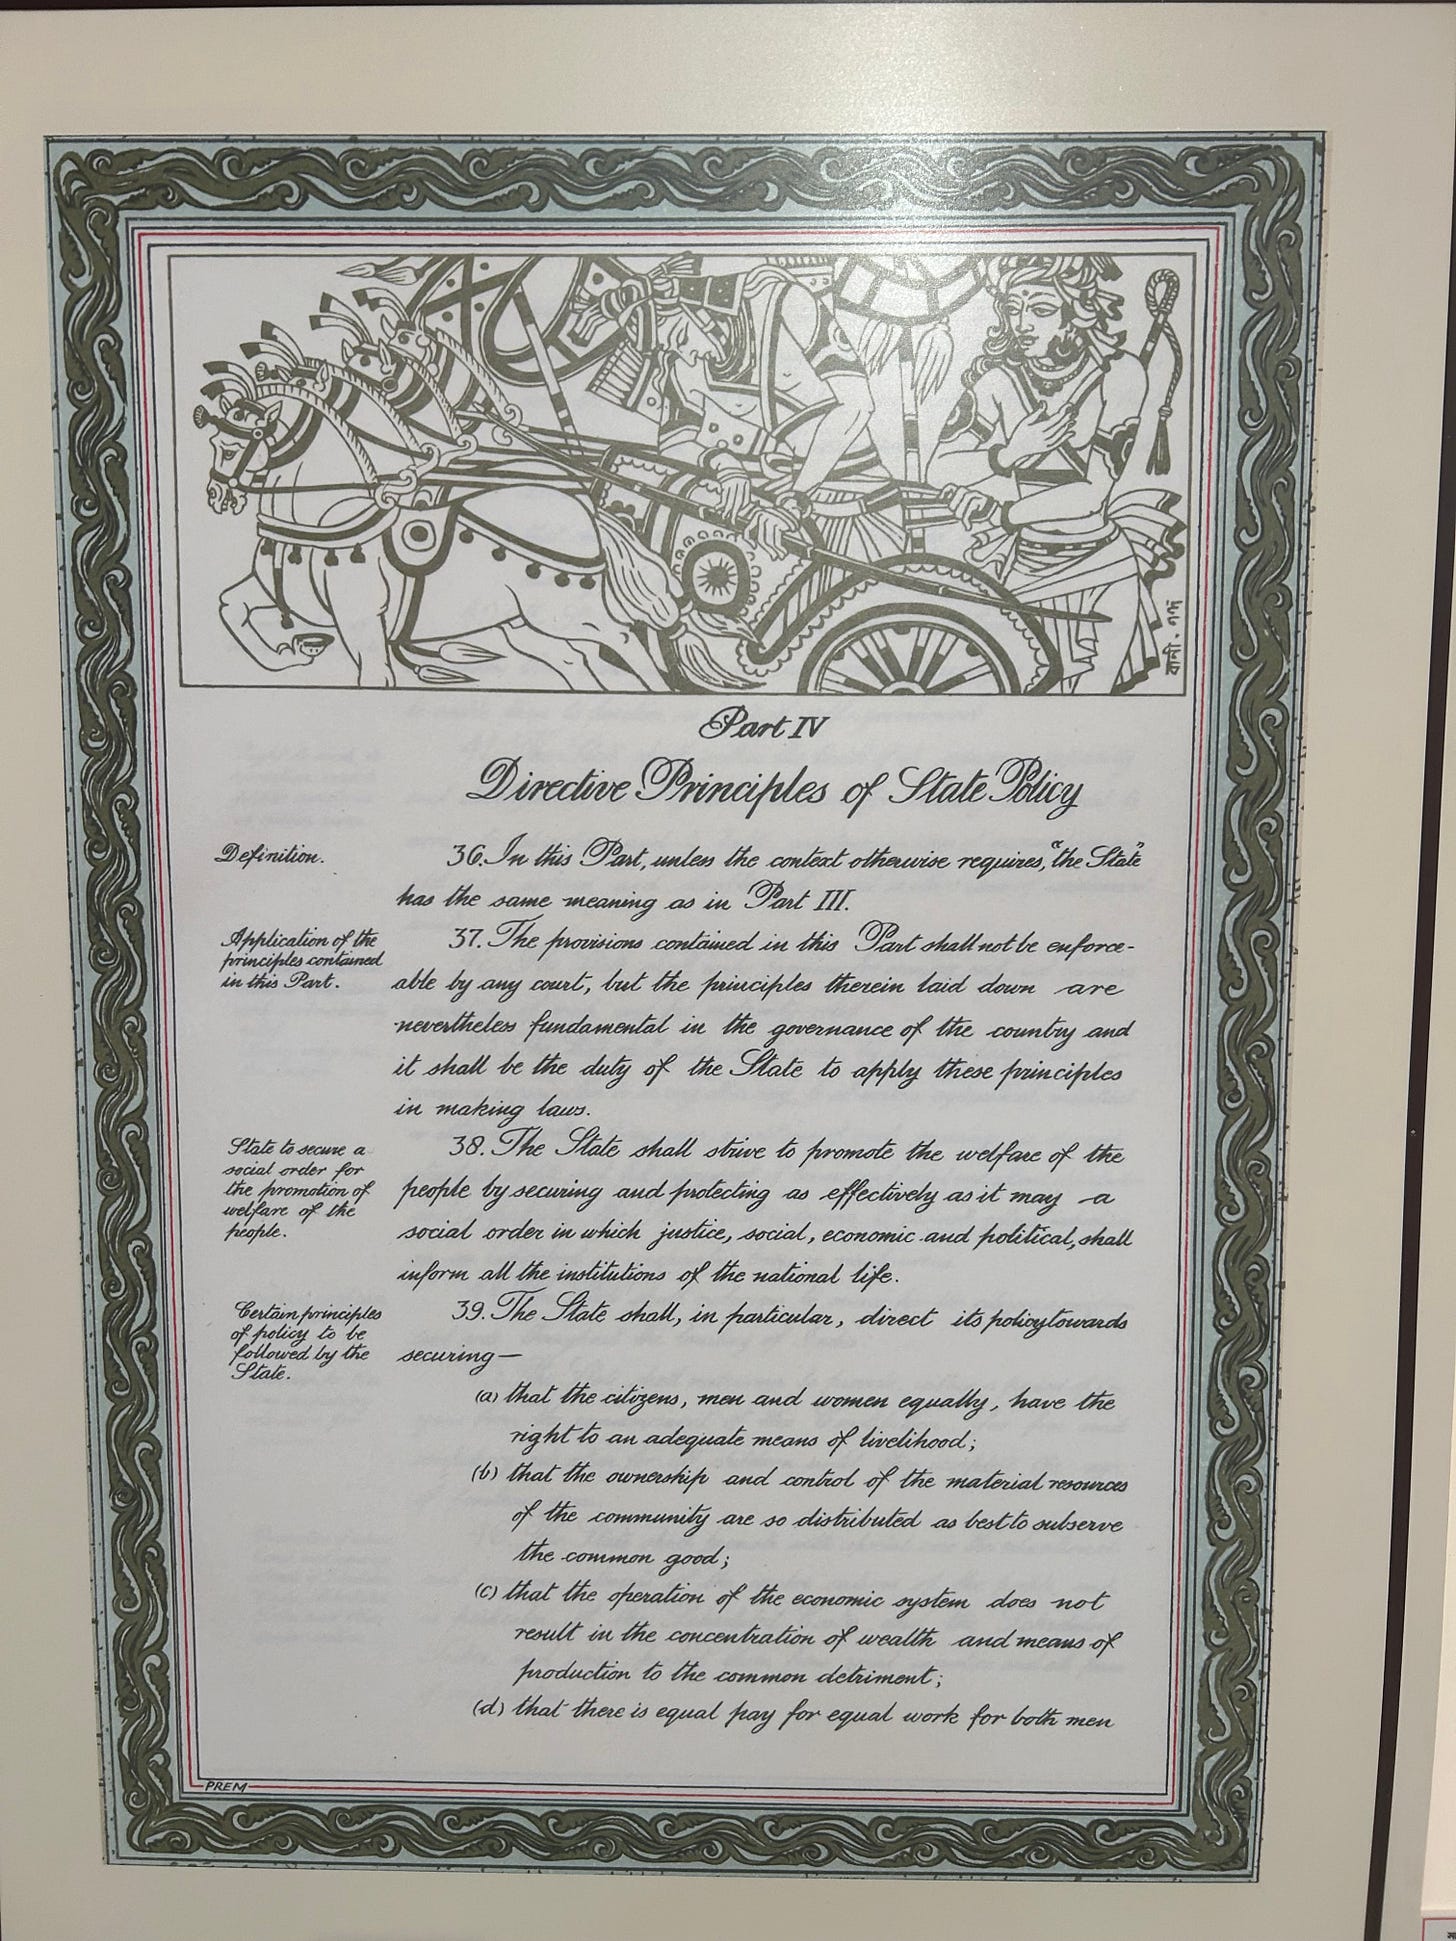 বাণী. নন্দ
Part IV
Directive Principles of State Policy
Definition.
36. In this Part, unless the context otherwise requires, "the State"
has the same meaning as in Part III.
Application of the
principles contained
in this Part.
37. The provisions contained in this Part shall not be enforce-
able by any court, but the principles therein laid down are
nevertheless fundamental in the governance of the country and
it shall be the duty of the State to apply these principles
in making laws.
State to secure a
social order for
the promotion of
welfare of the
people.
38. The State shall strive to promote the welfare of the
people by securing and protecting as effectively as it may a
social order in which justice, social, economic and political, shall
inform all the institutions of the national life.
Certain principles
of policy to be
followed by the
State.
39. The State shall, in particular, direct its policy towards
securing—
(a) that the citizens, men and women equally, have the
right to an adequate means of livelihood;
(b) that the ownership and control of the material resources
of the community are so distributed as best to subserve
the common good;
(c) that the operation of the economic system does not
result in the concentration of wealth and means of
production to the common detriment;
(d) that there is equal pay for equal work for both men
PREM